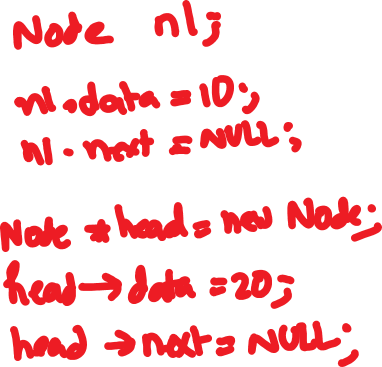 Node n1;
n1.data = 10;
n1.next = NULL;
Node *head = new Node;
head→data = 20;
head→next = NULL;